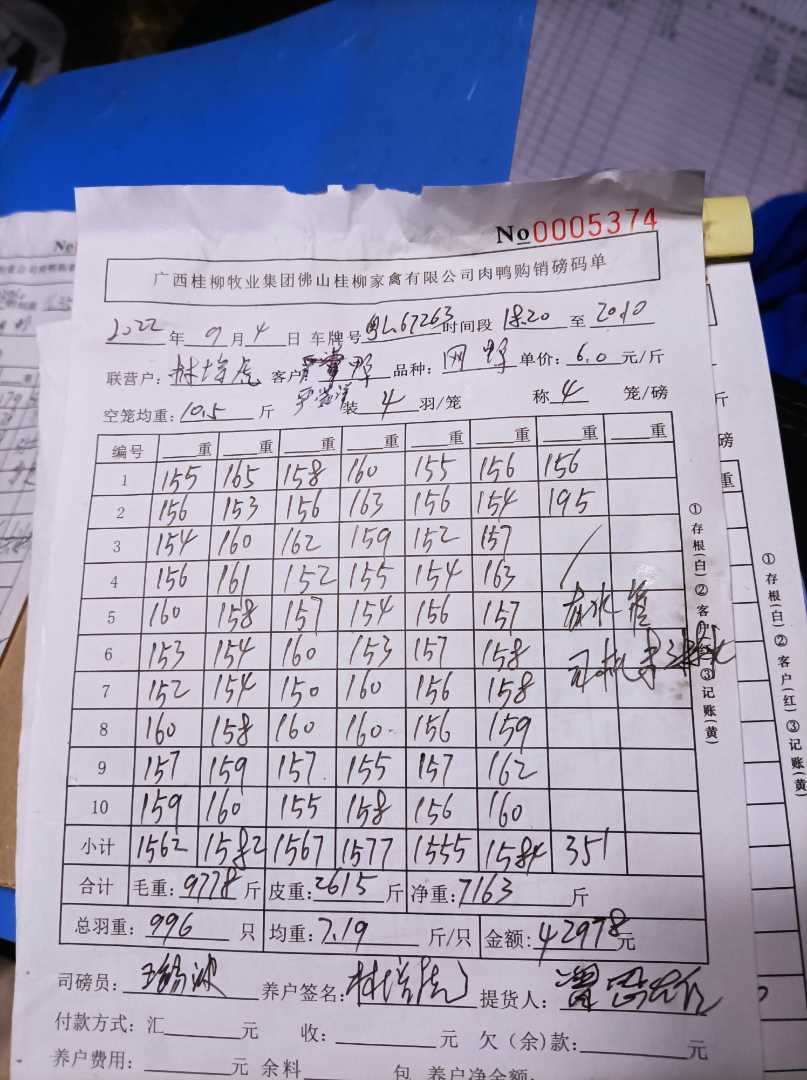 No 0005374
广西桂柳牧业集团佛山桂柳家禽有限公司肉鸭购销磅码单
2022年9月4日 车牌号 粤L67263 时间段 18:20 至 20:10
联营户: 林培虎 客户: 品种: 网鸭 单价: 6.0 元/斤
空笼均重: 10.5 斤 装 4 羽/笼 称 4 笼/磅
编号 重 重 重 重 重 重 重 重
1 155 165 158 160 155 156 156
2 156 153 156 163 156 154 195
3 154 160 162 159 152 157 /
4 156 161 152 155 154 163
5 160 158 157 154 156 157
6 153 154 160 153 157 158 司机
7 152 154 150 160 156 158
8 160 158 160 160 156 159
9 157 159 157 155 157 162
10 159 160 155 158 156 160
小计 1562 1582 1567 1577 1555 1584 351
合计 毛重: 9778 斤 皮重: 2615 斤 净重: 7163 斤
总羽重: 996 只 均重: 7.19 斤/只 金额: 42978 元
司磅员: 养户签名: 林培虎 提货人:
付款方式: 汇 元 收: 元 欠(余)款: 元
养户费用: 元 余料 包 养户净金额:
①存根(白)②客户(红)③记账(黄)
重
斤
磅
①存根(白)②客户(红)③记账(黄)